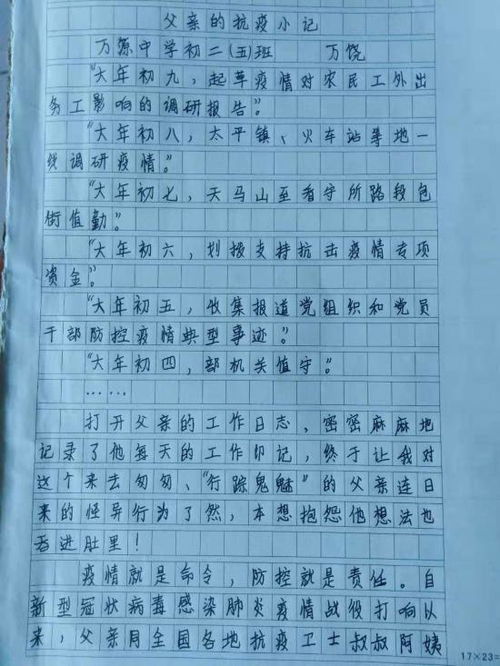 父亲的抗疫小记
万源中学初二(五)班 万饶
“大年初九，起草疫情对农民工外出
务工影响的调研报告。”
“大年初八，太平镇、火车站等地一
线调研疫情。”
“大年初七，天马山至看守所路段包
街值勤。”
“大年初六，划拨支持抗击疫情专项
资金。”
“大年初五，收集报道党组织和党员
干部防控疫情典型事迹。”
“大年初四，部机关值守。”
……
打开父亲的工作日志，密密麻麻地
记录了他每天的工作印记，终于让我对
这个来去匆匆、“行踪鬼魅”的父亲连日
来的怪异行为了然，本想抱怨他想法也
吞进肚里！
疫情就是命令，防控就是责任。自
新型冠状病毒感染肺炎疫情战役打响以
来，父亲同全国各地抗疫卫士叔叔阿姨
17×23=